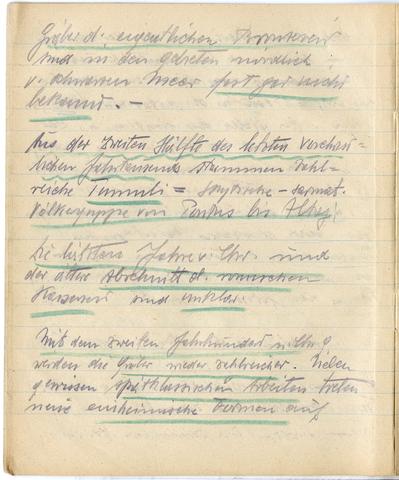 Gräber d. eigentlichen
sind in den Gebieten nördlich
v. schwarzen Meer fast gar nicht
bekannt. —
Aus der zweiten Hälfte des letzten vorchrist-
lichen Jahrtausend stammen zahl-
reiche Tumuli = skytische - sarmat.
Völkergruppe von Pontus bis Altaj.
Die letzten Jahre v. Chr. und
der ältere Abschnitt d. römischen
sind unklar.
Mit dem zweiten Jahrhundert n. Chr.
werden die Gräber wieder zahlreicher. Neben
gewissen spätklassischen Arbeiten treten
neue einheimische Formen auf